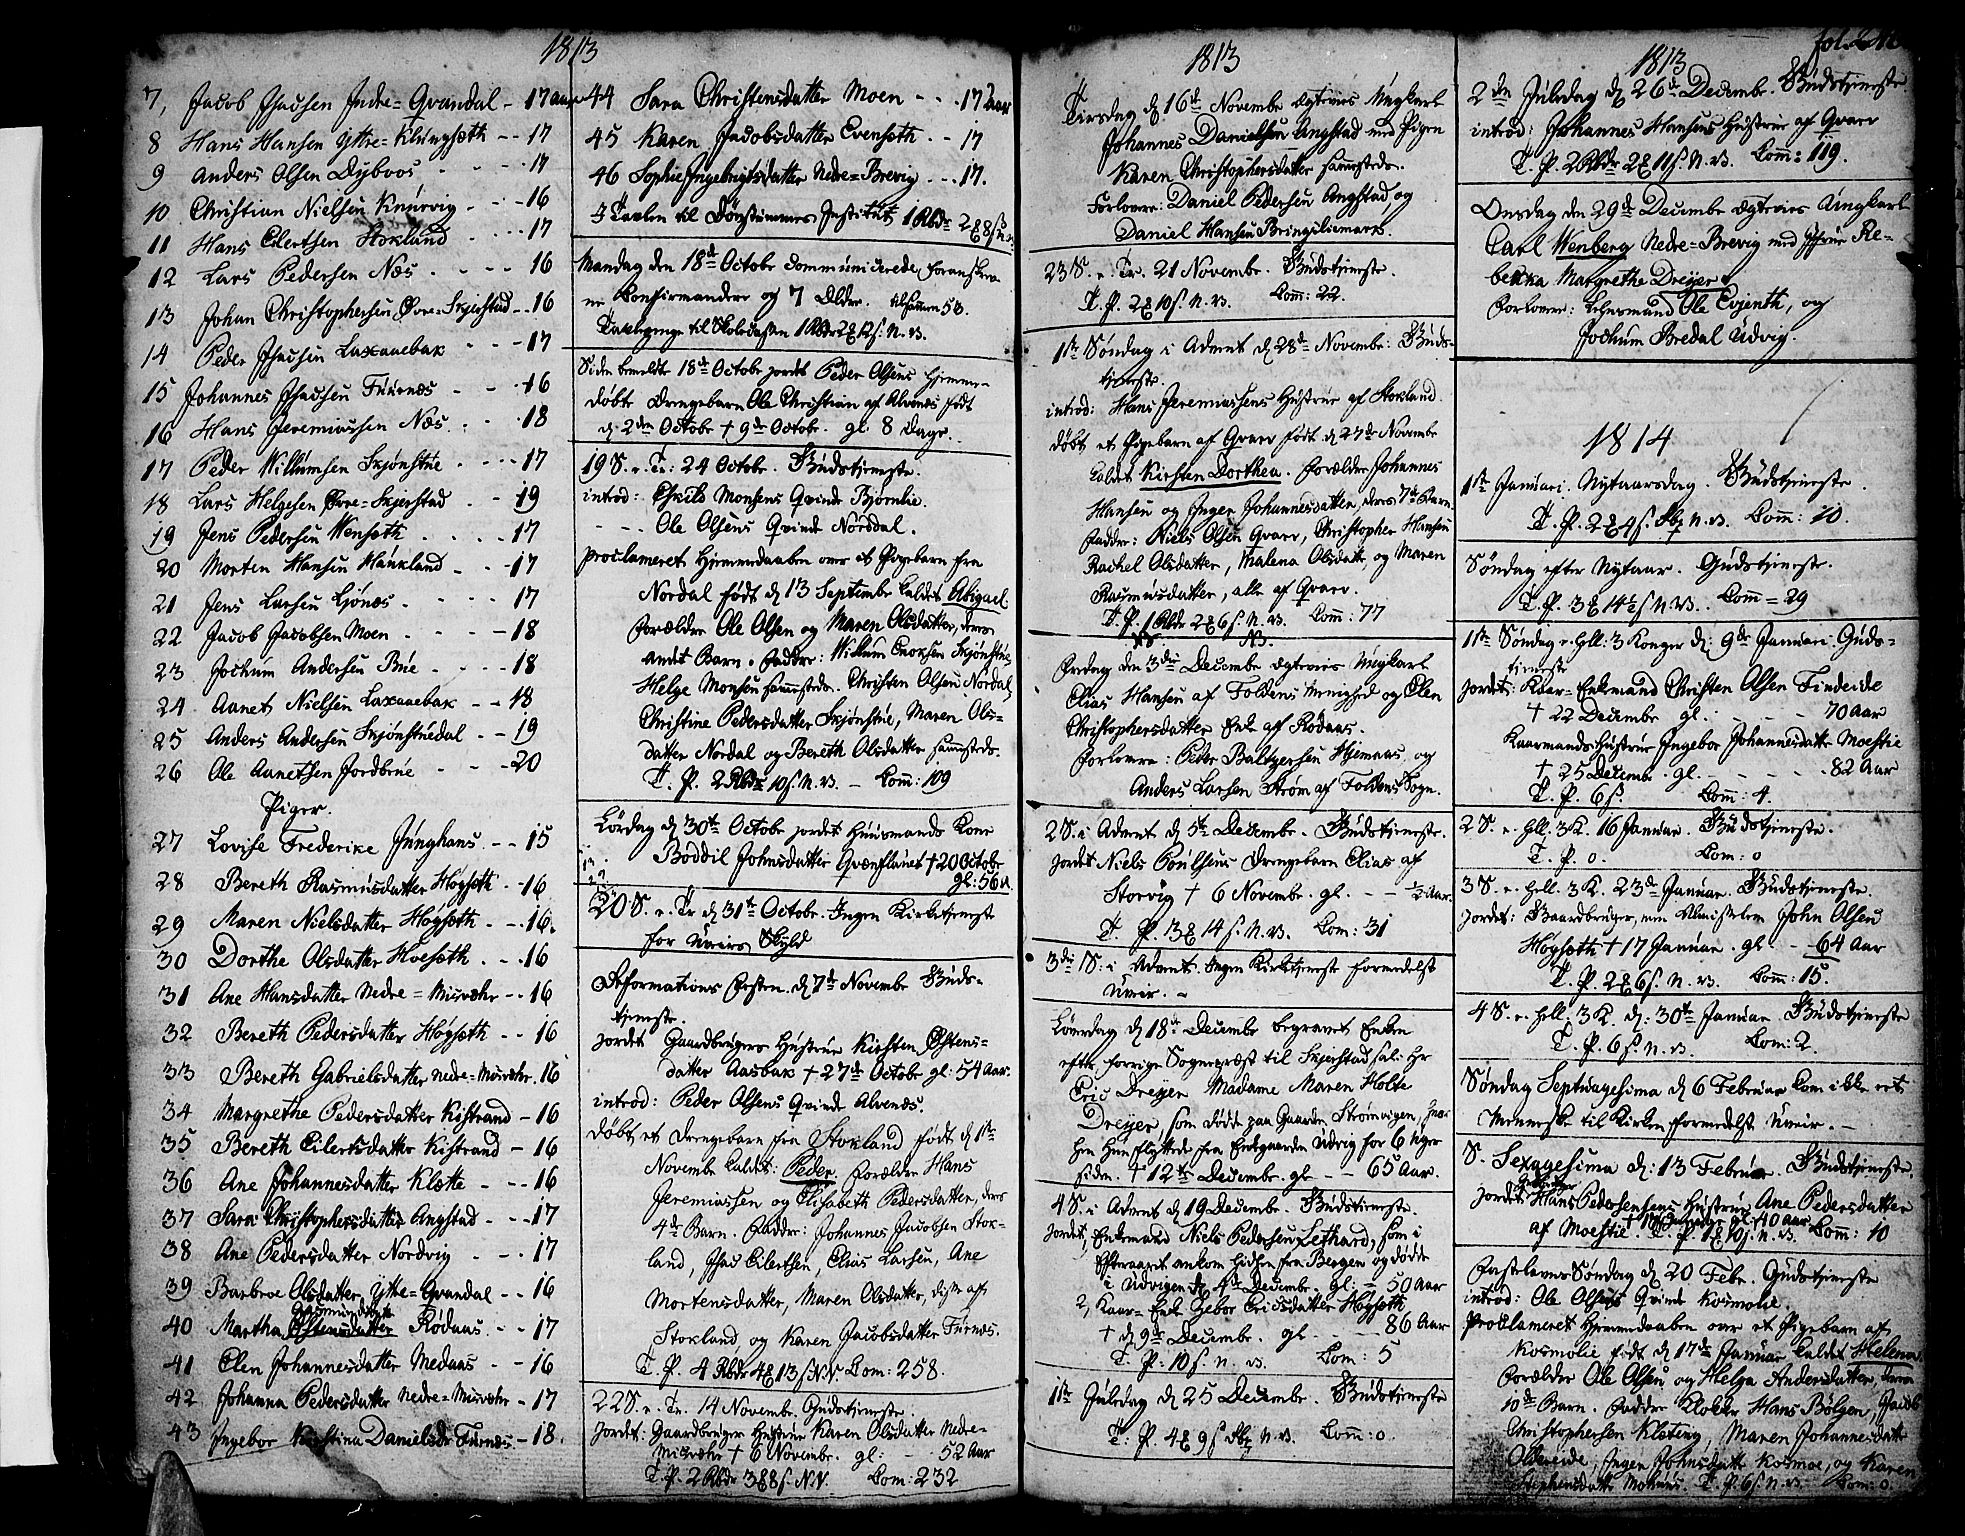 1813
7, Jacob Isacsen Indre=Qvandal - 17 aar
8 Hans Hansen Yttre=Klungseth - - 17
9 Anders Olsen Dybvos - - - 17
10 Christian Nielsen Knurvig - - - 16
11 Hans Eilertsen Stokland - - - 17
12 Lars Pedersen Næs - - - 16
13 Johan Christophersen Øvre=Skjerstad - - 16
14 Peder Isacsen Laxaaebak - - - 17
15 Johannes Isacsen Furnæs - - - 16
16 Hans Jeremiassen Næs - - 18
17 Peder Willumsen Skjønstue - - - 17
18 Lars Helgesen Øvre=Skjerstad - 19
19 Jens Pedersen Wenseth - - - - 17
20 Morten Hansen Haukland - - - 17
21 Jens Larsen Ljønæs - - - - 17
22 Jacob Jacobsen Moen - - - - 18
23 Jochum Andersen Brue - - - - 18
24 Aanet Nielsen Laxaaebak - - 18
25 Anders Andersen Skjønstuedal - - 19
26 Ole Aanetsen Jordbrue - - - 20
Piger.
27 Lovise Frederike Junghans - - 15
28 Bereth Rasmusdatter Høgseth - 16
29 Maren Nielsdatter Høgseth - - 16.
30 Dorthe Olsdatter Hoeseth - - - 16
31 Ane Hansdatter Nedre=Misvær - - 16
32 Bereth Pedersdatter Høgseth - - 16
33 Bereth Gabrielsdatter Nedre=Misvær. 16
34 Margrethe Pedersdatter Kistrand - 16
35 Bereth Eilertsdatter Kistrand - 16
36 Ane Johannesdatter Klætte - - 16
37 Sara Christophersdatter Angstad - - - 17
38 Ane Pedersdatter Nordvig - - - 17
39 Barbroe Olsdatter Ytre=Qvandal - - 16
40 Martha Østensdatter Rødaas - - 17
41 Elen Johannesdatter Medaas - - 16
42 Johanna Pedersdatter Nedre=Misvær - 17
43 Ingebor Kirstina Danielsdr Furnæs - 18.
44 Sara Christensdatter Moen - - - 17 aar
45 Karen Jacobsdatter Evenseth - - 17
46 Sophie Ingebrigtsdatter Nedre=Brevig - - - 17.
I Tavlen til Døvstummes Institut 1 Rbdr 2 ℳ 8 s N.V.
Mandag den 18de Octobr communicerede foranskrev-
ne Confirmander og 7 Ældre. tilsammen 53.
Tavlepenge til Skolecassen 1 Rbdr 2 ℳ 12 s. N.V.
Siden bemeldte 18de Octobr jordet Peder Olsens hjemme-
døbte Drengebarn Ole Christian af Alvenæs født
d. 2den Octobr † 9de Octobr. gl. 8 Dage.
19 S. e. Tr: 24 Octobr. Gudstjeneste.
introd: Eskild Monsens Qvinde Bjørnlie.
- - - Ole Olsens Qvinde Nordal.
proclameret Hjemmedaaben over et Pigebarn fra
Nordal født d. 13 September kaldet Abigael
Forældre Ole Olsen og Maren Olsdatter, deres
andet Barn. Faddere: Willum Enoksen Skjønstue,
Helge Monsen sammesteds. Christen Olsen Nordal,
Christine Pedersdatter Skjønstue, Maren Ols-
datter Nordal og Bereth Olsdatter sammesteds.
T. P. 2 Rbdr 10 s. N.V. - Com: 109
Lørdag d. 30te Octobr jordet Huusmands Kone
Boddil Johnsdatter † 20 Octobr
gl: 56 A.
20 S. e. Tr. d. 31te Octobr. Ingen Kirketjeneste
for Uveirs Skyld
Reformations Festen d. 7de Novembr Guds-
tjeneste.
jordet Gaardbrugers Hustrue Kirsten Østens-
datter Aasbak † 27de Octobr gl: 54 Aar.
introd: Peder Olsens Qvinde Alvenæs.
døbt et Drengebarn fra Stokland født d. 1te
Novembr kaldet: Peder. Forældre Hans
Jeremiassen og Elisabeth Pedersdatter, deres
4de Barn. Faddere: Johannes Jacobsen Stok-
land, Isac Eilertsen, Elias Larsen, Ane
Mortensdatter, Maren Olsdatter, disse af
Stokland, og Karen Jacobsdatter Furnæs.
T. P. 4 Rbdr 4 ℳ 13 s N.V. Com: 258.
22 S. e. Tr. 14 Novembr. Gudstjeneste
jordet: Gaardbruger Hustrue Karen Olsdatter Nedre-
Misvær † 6 Novembr. gl. - 52 Aar
T. P. 2 Rbdr 3 ℳ 8 s. N.V. Com: 232
1813
Tirsdag d. 16de Novembr Egteviet Ungkarl
Johannes Danielsen Angstad med Pigen
Karen Christophersdatter sammesteds.
Forlovere: Daniel Pedersen Angstad, og
Daniel Hansen Bringsliemark.
23 S. e. Tr. 21 Novembr. Gudstjeneste.
T. P. 2 ℳ 10 s. N.V. Com: 22.
1te Søndag i Advent d. 28de Novembr: Guds-
tjeneste.
introd: Hans Jeremiassens Hustrue af Stokland.
døbt et Pigebarn af Qvarv født d. 27de Novembr
kaldet Kirsten Dorthea. Forældre Johannes
Hansen og Inger Johannesdatter, deres 7de Barn.
Faddere: Niels Olsen Qvarv, Christopher Hansen
Rachel Olsdatter, Malena Olsdatter og Maren
Rasmusdatter, alle af Qvarv.
T. P. 1 Rbdr 2 ℳ 6 s. N.V. Com: 77
Fredag den 3die Decembr Egteviet Ungkarl
Elias Hansen af Foldens Menighed og Elen
Christophersdatter Enke af Rødaas.
Forlovere: Peter Baltzersen Hjemaas, og
Anders Larsen Strøm af Foldens Sogn.
2 S. i Advent d. 5te Decembr. Gudstjeneste.
jordet Niels Poulsens Drengebarn Elias af
Storvig † 6 Novembr. gl. - - ½ Aar.
T. P. 3 ℳ 14 s. N.V. Com: 31
3die S. i Advent. Ingen Kirketjeneste formedelst
Uveir. -
Løverdag d. 18de Decembr begravet Enken
efter forrige Sognepræst til Skjerstad sal: Hr
Eric Dreyer Madame Maren Holte
Dreyer, som døde paa Gaarden Strømvigen, hvor
hen hun flyttede fra Enkegaarden Udvig for 6 Uger
siden. † 12te Decembr. gl. - 65 Aar.
4 S. i Advent d. 19 Decembr. Gudstjeneste.
jordet, Enkemand Niels Pedersen Lethard, som i
Efteraaret ankom hidhen fra Bergen og døde
i Udvigen d. 4de Decembr. gl: - 50 Aar
2, Kaar=Enke Gebor Ericsdatter Høgseth
† d. 9de Decembr. gl. - - 86 Aar
T. P. 10 s. N.V. Com: 5
1te Juledag d. 25 Decembr. Gudstjeneste
T: P. 4 ℳ 9 s Sbz N.V. Com: 0.
1813
2den Juledag d. 26de Decembr. Gudstjeneste.
introd: Johannes Hansens Hustrue af Qvarv
T. P. 2 Rbdr 2 ℳ 11 s. N.V. Com: 119.
Onsdag den 29de Decembr Egteviet Ungkarl
Carl Wenberg Nedre=Brevig med Jfrue Re-
bekka Margrethe Dreyer.
Forlovere: Lehnsmand Ole Evjenth, og
Jochum Bredal Udvig.
1814
1te Januari. Nytaarsdag. Gudstjeneste.
T. P. 2 ℳ 4 s. Sbz N.V. Com: 10.
Søndag efter Nytaar. Gudstjeneste.
T. P. 3 ℳ 14½ s N.V. Com = 29
1te Søndag e. Hell: 3 Konger d: 9de Januari. Guds-
tjeneste
jordet: Kaar=Enkemand Christen Olsen Findeide
† 22 Decembr gl. - - - 70 Aar
Kaarmands Hustrue Ingebor Johannesdatter Moestie
† 25 Decembr. gl. - - - 82 Aar
T. P. 6 s. Com: 4.
2 S. e. Hell. 3 K. 16 Januar. Gudstjeneste.
T. P. 0. Com: 0
3 S. e. Hell. 3 K. 23de Januar. Gudstjeneste.
jordet: Gaardbruger, nu Almisselem John Olsen
Høgseth † 17 Januar. gl. - - 64 Aar
T. P. 2 ℳ 6 s. N.V. Com: 15.
4 S. e. Hell. 3 K. d: 30te Januar Gudstjeneste
T. P. 6 s. N.V. Com: 2.
Søndag Septuagesima d. 6 Februar kom ikke et
Menneske til Kirken formedelst Uveir. -
S. Sexagesima d: 13 Februar. Gudstjeneste.
jordet Hans Pedersens Hustrue Ane Pedersdatter
af Moestie. T. P. 1 ℳ 10 s. N.V. Com: 10
Fastelavns Søndag d. 20 Febr. Gudstjeneste
introd: Ole Olsens Qvinde Kosmolie.
Proclameret Hjemmedaaben over et Pigebarn af
Kosmolie født d. 17de Januar kaldet Helena
Forældre Ole Olsen og Helga Andersdatter, deres
10de Barn. Faddere Klokker Hans Bölgen, Jacob
Christophersen Kletting, Maren Johannesdatter
Oldereide, Inger Johnsdatter Kosmoe, og Karen
Stephensdatter T. P. 6 s. N.V. Com: 0.